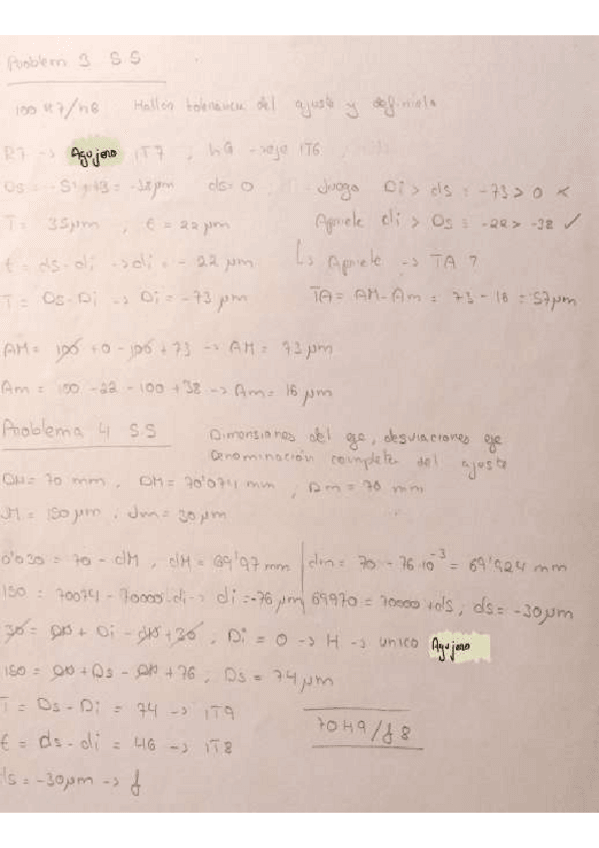 Problem 3 S.S
100 R7/h6 Hallar tolerancia del ajuste y definirla
R7 -> Agujero IT7, h6 -> eje IT6
Ds = -51+13 = -38µm ds = 0 Juego Di > ds = -73 > 0 x
T = 35µm, t = 22µm Apriete di > Ds = -22 > -38 ✓
t = ds - di -> di = -22 µm ↳ Apriete -> TA ?
T = Ds - Di -> Di = -73 µm TA = AM - Am = 73 - 16 = 57µm
AM = 100 + 0 - 100 + 73 -> AM = 73 µm
Am = 100 - 22 - 100 + 38 -> Am = 16 µm
Problema 4 S.S Dimensiones del eje, desviaciones eje
Denominación completa del ajuste
DN = 70 mm, DM = 70'074 mm, Dm = 70 mm
JM = 150µm, Jm = 30µm
0'030 = 70 - dM, dM = 69'97 mm dm = 70 - 76·10⁻³ = 69'924 mm
150 = 70074 - 70000 - di -> di = -76µm 69970 = 70000 + ds, ds = -30µm
30 = DN + Di - DN + 30, Di = 0 -> H -> unico Agujero
150 = DN + Ds - DN + 76, Ds = 74µm
T = Ds - Di = 74 -> IT9
t = ds - di = 46 -> IT8
70H9/f8
ds = -30µm -> f